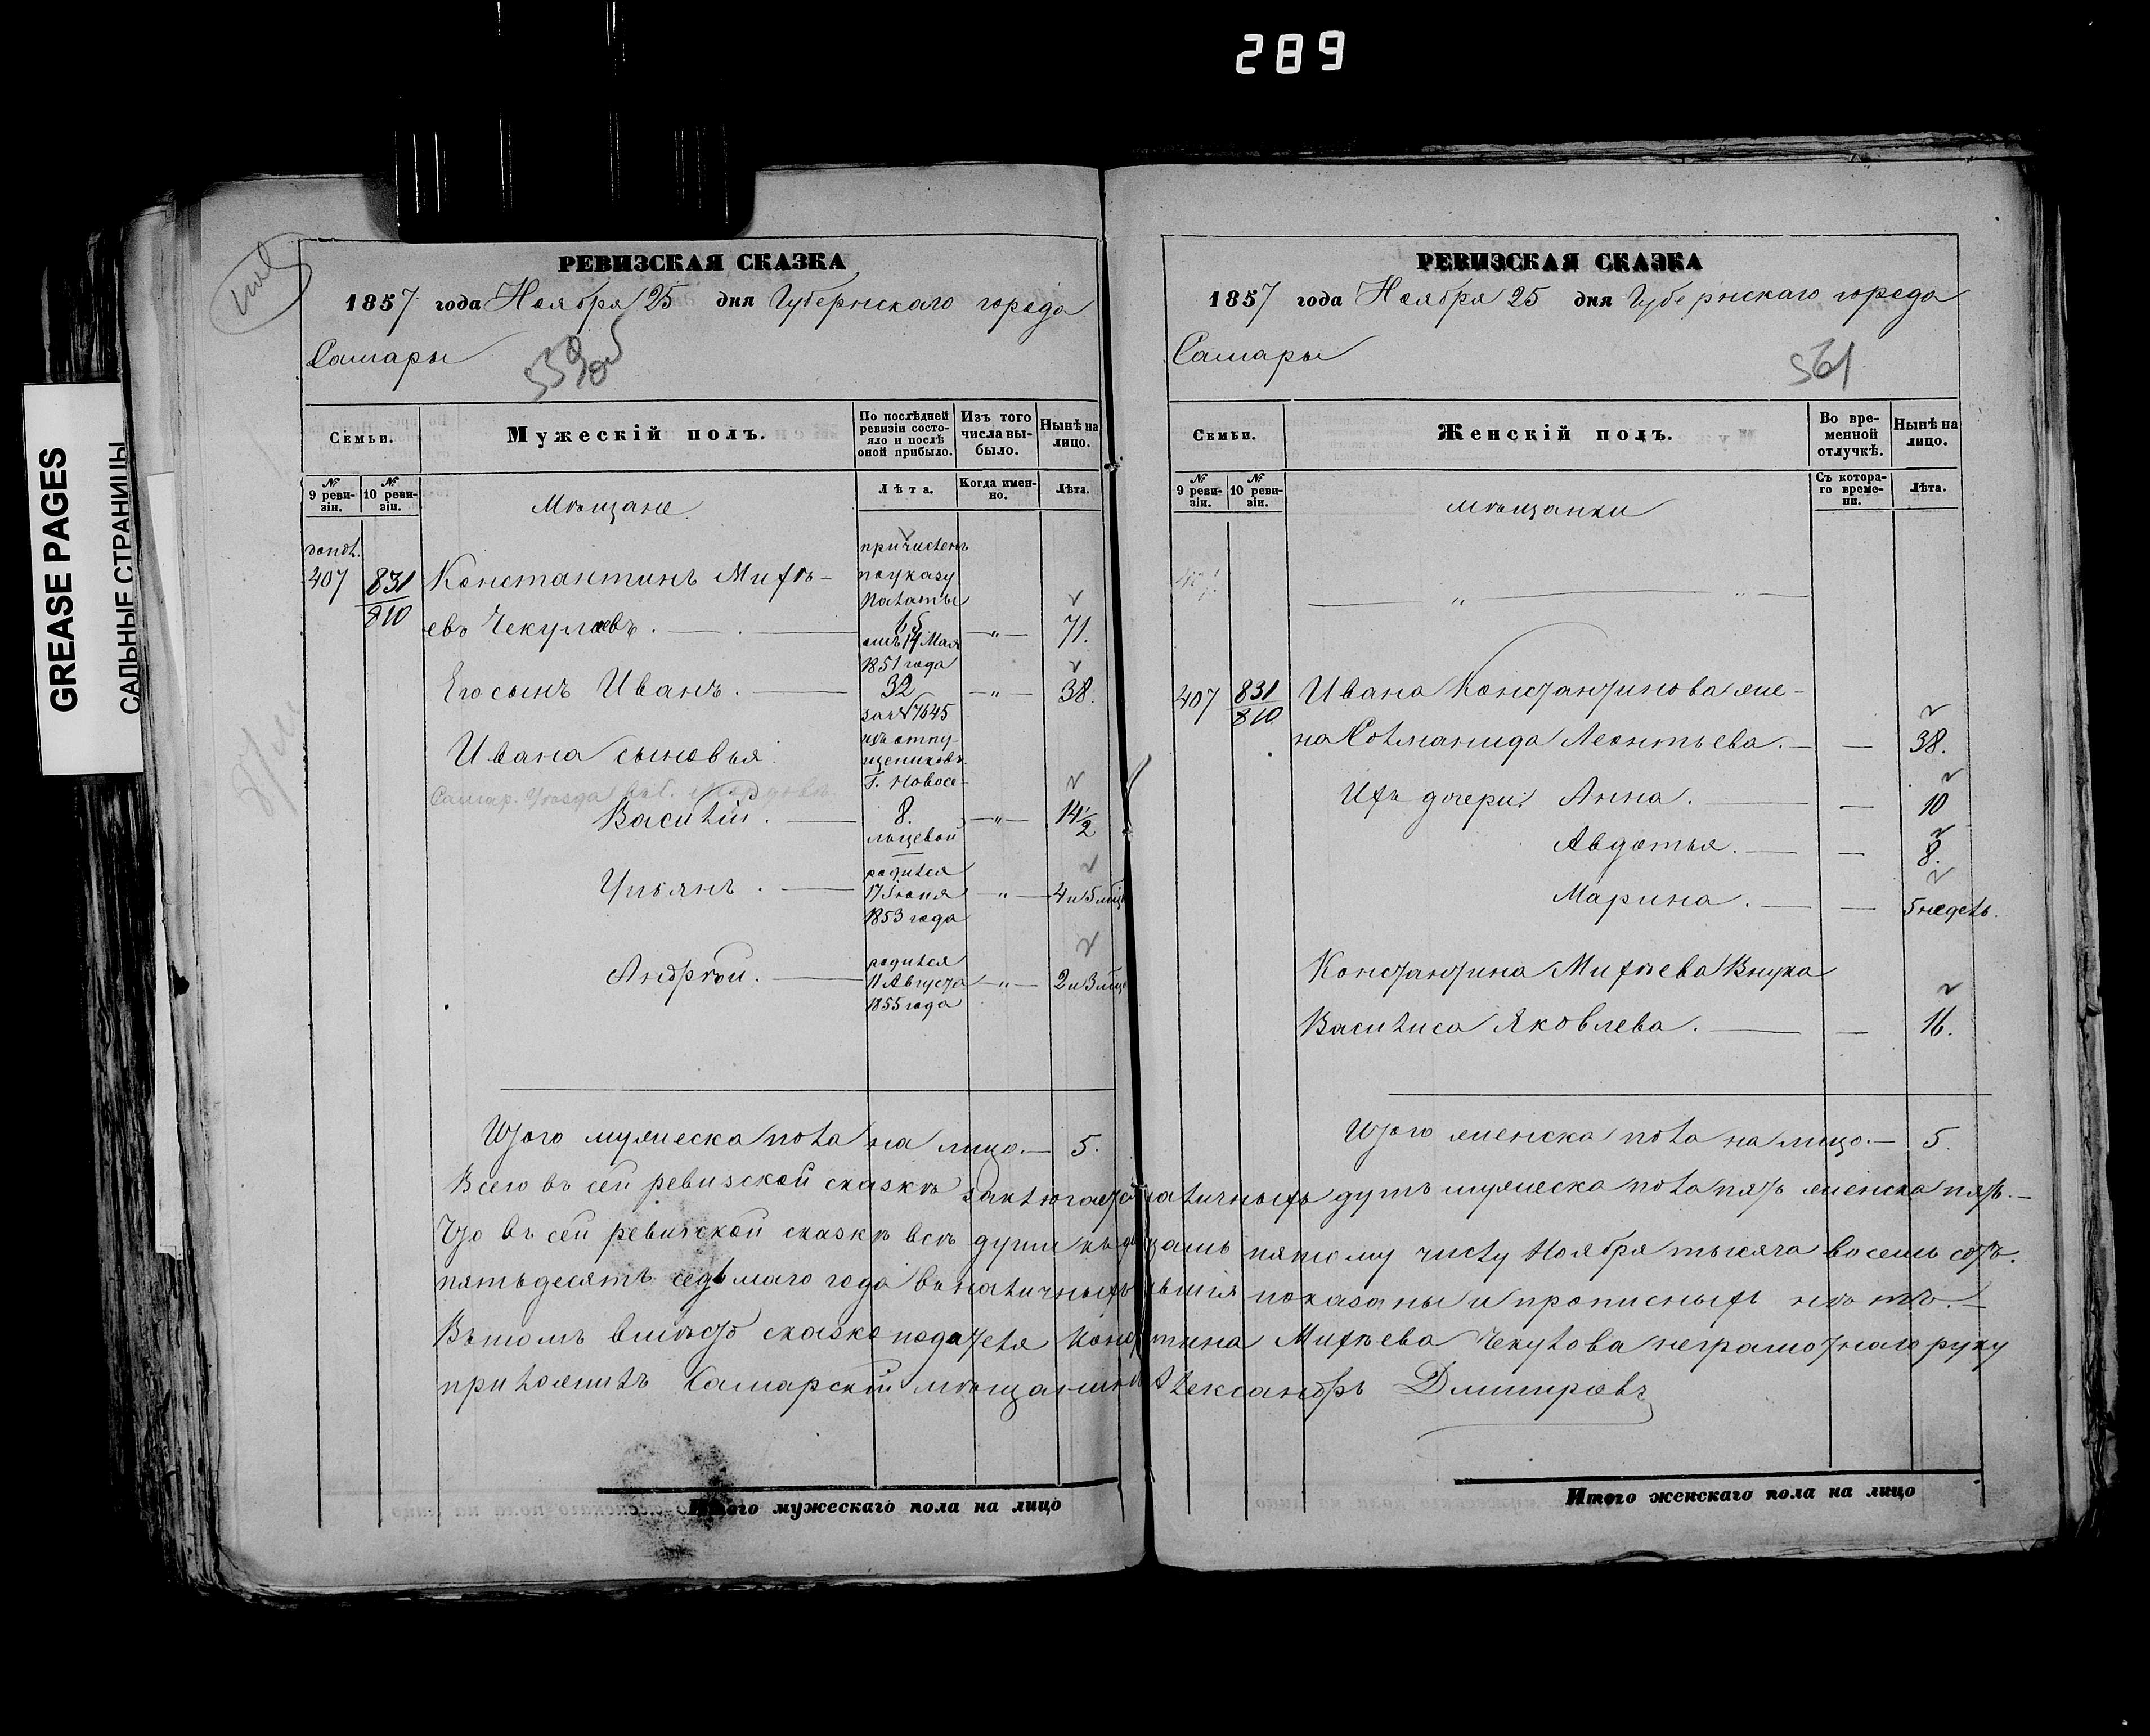 289
GREASE PAGES
САЛЬНЫЕ СТРАНИЦЫ
РЕВИЗСКАЯ СКАЗКА
1857 года Ноября 25 дня Губернскаго города
Самары
Семьи.
Мужескій полъ.
По послѣдней ревизіи состояло и послѣ оной прибыло.
Изъ того числа выбыло.
Нынѣ на лицо.
№ 9 ревизіи.
№ 10 ревизіи.
Мѣщане
Лѣта.
Когда именно.
Лѣта.
допол.
407 831 Константинъ Михѣ-
810
евъ Чекулаевъ. 65 —„— 71.
причисленъ
по указу
Палаты
отъ 14 Мая
1851 года
за № 7645
изъ отпу-
щениковъ
Г. Новосе-
льцевой
Его сынъ Иванъ. 32 —„— 38.
Ивана сыновья:
Самар. Уѣзда
Василій. 8. —„— 14½
Ульянъ. родился 17 Іюня 1853 года —„— 4 и 5 мѣц
Андрѣй. родился 11 Августа 1855 года —„— 2 и 3 мѣц
Итого мужеска пола на лицо.— 5.
РЕВИЗСКАЯ СКАЗКА
1857 года Ноября 25 дня Губернскаго города
Самары
561
Семьи.
Женскій полъ.
Во временной отлучкѣ.
Нынѣ на лицо.
№ 9 ревизіи.
№ 10 ревизіи.
мѣщанки
Съ котораго времени.
Лѣта.
407 831 Ивана Константинова же-
810
на Соломанида Леонтьева. — 38.
Ихъ дочери: Анна. — 10
Авдотья. — 8.
Марина. — 5 недель.
Константина Михѣева Внука
Василиса Яковлева. — 16.
Итого женска пола на лицо.— 5.
Всего въ сей ревизской сказкѣ заключается наличныхъ душъ мужеска пола пять женска пять.—
Что въ сей ревизской сказкѣ всѣ души къ двадцать пятому числу Ноября тысяча восемь сотъ.
пятьдесятъ седьмаго года въ наличныхъ бывшія показаны и прописныхъ нѣтъ.—
Въ томъ вмѣсто сказко подателя Константина Михѣева Чекулова неграмотнаго руку
приложилъ Самарской мѣщанинъ Александръ Дмитріевъ
Итого мужескаго пола на лицо
Итого женскаго пола на лицо